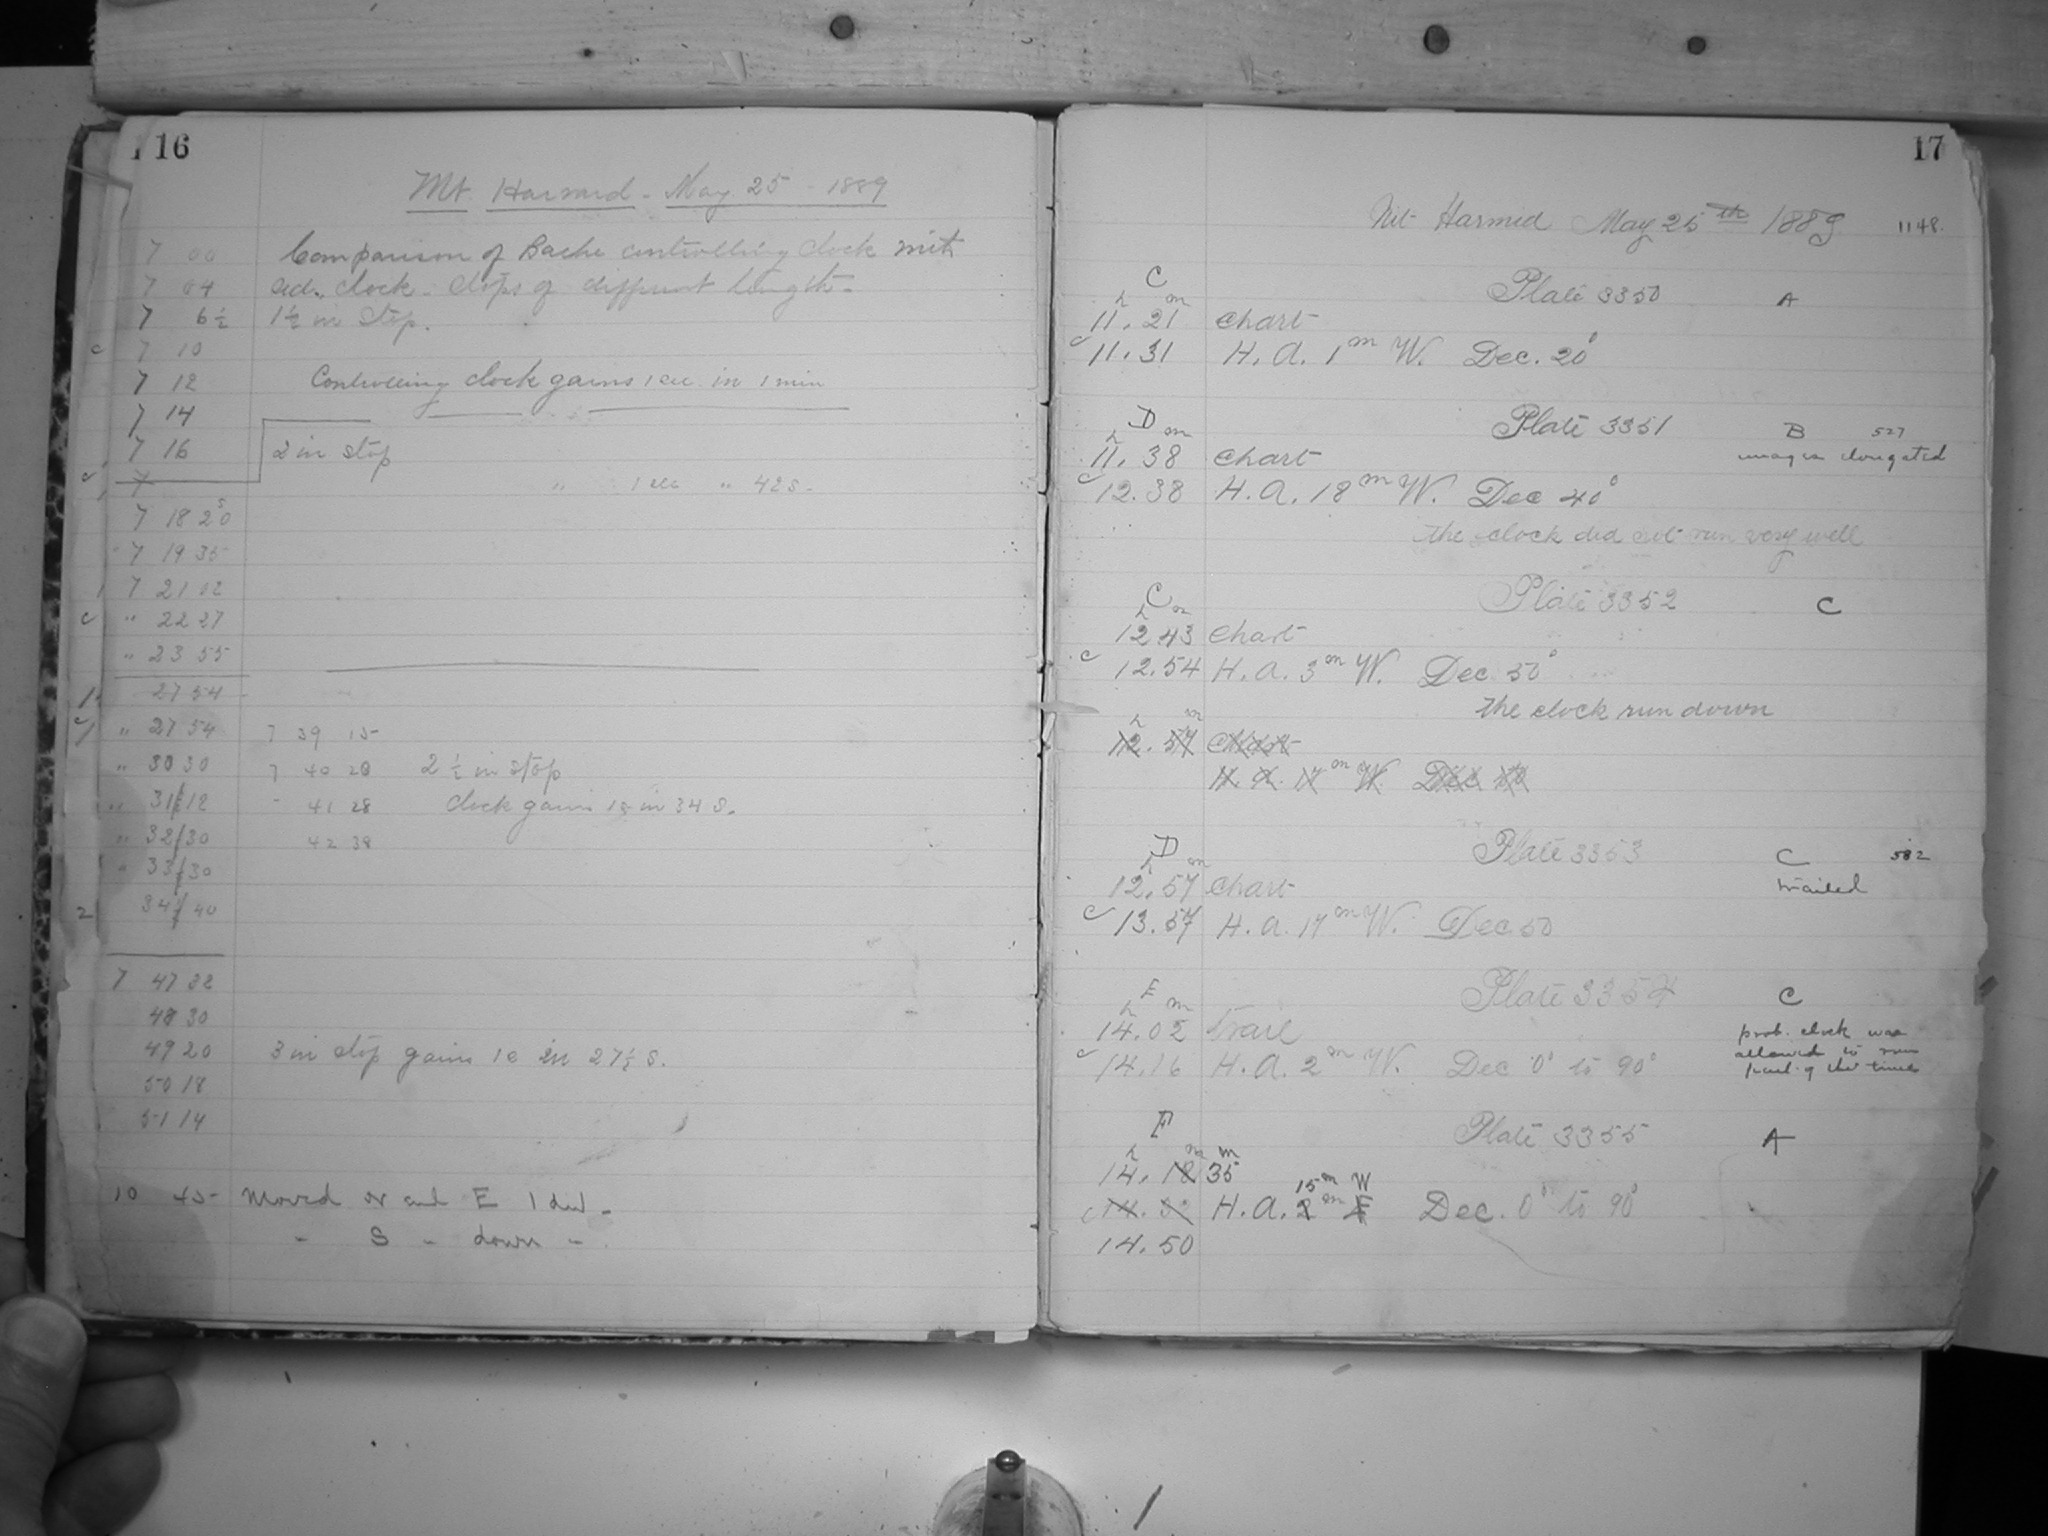 16
Mt. Harvard - May 25 - 1889
7 00 Comparison of Bache controlling clock with
7 04 sid. clock - stops of different length -
7 6½ 1½ in stop.
c 7 10
7 12 Controlling clock gains 1 sec. in 1 min
7 14
7 16 2 in stop
" 1 sec " 42 s.
7 18 20
7 19 35
7 21 02
c " 22 27
" 23 55
27 54
" 27 54 7 39 15
" 30 30 7 40 20 2½ in stop
" 31 12 " 41 28 clock gains 1s in 34 s.
" 32 30 42 38
" 33 30
2 34 40
7 47 32
48 30
49 20 3 in stop gains 1s in 27½ s.
50 18
51 14
10 45 Moved N end E 1 div.
" S " down "
17
Mt. Harvard May 25th 1889 1148.
C Plate 3350 A
h m
11. 21 Chart
c 11. 31 H. A. 1m W. Dec. 20°
D Plate 3351 B 527
h m
11. 38 Chart images elongated
c 12. 38 H. A. 18m W. Dec 40°
The clock did not run very well
C Plate 3352 C
h m
12 43 Chart
c 12. 54 H. A. 3m W. Dec 50°
The clock run down
h m
12. 57 Chart
H. A. 17m W. Dec 50
D Plate 3353 C 582
h m
12. 57 Chart trailed
c 13. 57 H. A. 17m W. Dec 50
E Plate 3354 C
h m
14. 02 Trail prob. clock was
allowed to run
c 14. 16 H. A. 2m W. Dec 0° to 90° part of the time
F Plate 3355 A
h m m
14. 18 35
15m W
H. A. 2m E Dec. 0° to 90°
14. 50